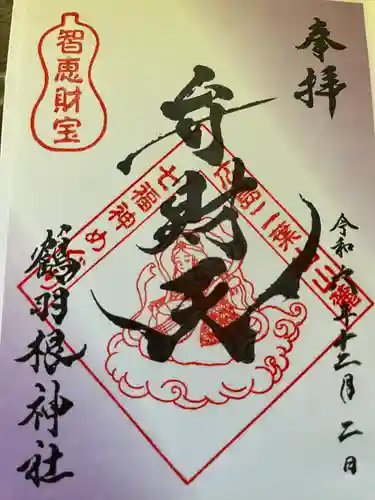 奉拝
智恵財宝
弁財天
広島二葉山山麓
七福神めぐり
令和六年十二月二日
鶴羽根神社